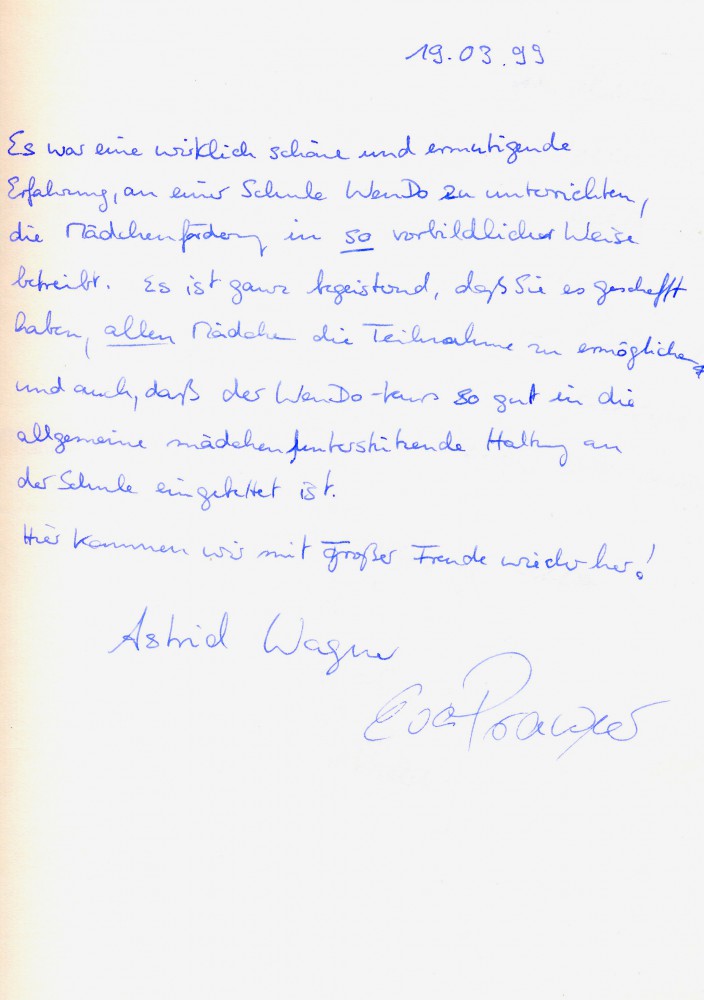 19.03.99
Es war eine wirklich schöne und ermutigende
Erfahrung, an einer Schule WenDo zu unterrichten,
die Mädchenförderung in so vorbildlicher Weise
betreibt. Es ist ganz begeisternd, daß Sie es geschafft
haben, allen Mädchen die Teilnahme zu ermöglichen,
und auch, daß der WenDo-Kurs so gut in die
allgemeine mädchenunterstützende Haltung an
der Schule eingebettet ist.
Hier kommen wir mit großer Freude wieder her!
Astrid Wagner
Eva